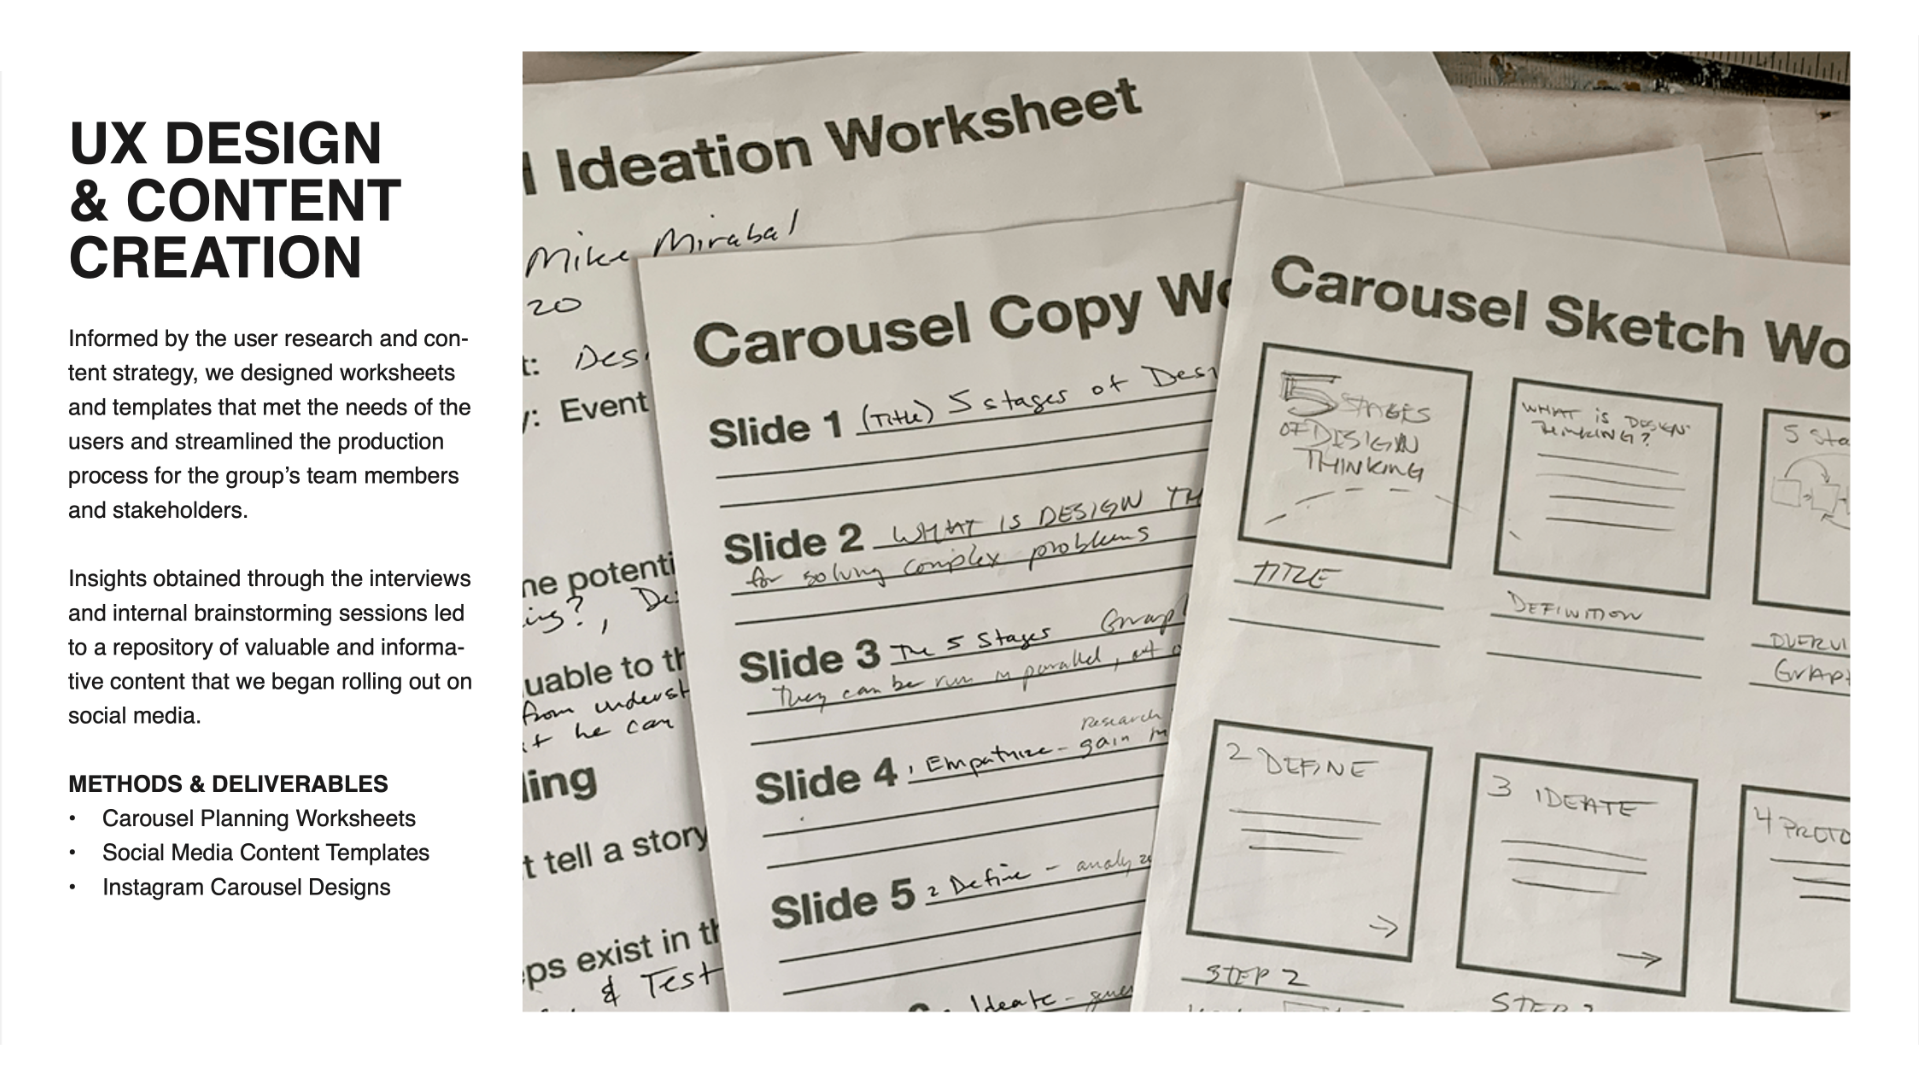 UX DESIGN
& CONTENT
CREATION
Informed by the user research and con-
tent strategy, we designed worksheets
and templates that met the needs of the
users and streamlined the production
process for the group’s team members
and stakeholders.
Insights obtained through the interviews
and internal brainstorming sessions led
to a repository of valuable and informa-
tive content that we began rolling out on
social media.
METHODS & DELIVERABLES
• Carousel Planning Worksheets
• Social Media Content Templates
• Instagram Carousel Designs
Ideation Worksheet
Mike Mirabal
20
t: Des
y: Event
ne potenti
ing?, De
uable to th
from underst
it he can
ling
t tell a story
ps exist in th
& Test
Carousel Copy Wo
Slide 1 (Title) 5 stages of Desi
Slide 2 WHAT IS DESIGN TH
for solving complex problems
Slide 3 The 5 Stages Graph
They can be run in parallel, out o
research
Slide 4 1 Empathize - gain in
Slide 5 2 Define - analyze
Ideate -
Carousel Sketch Wo
5 STAGES
OF DESIGN
THINKING
TITLE
WHAT IS DESIGN
THINKING?
DEFINITION
5 Sta
OVERVI
GRAP
2 DEFINE
STEP 2
3 IDEATE
STEP
4 PROTO